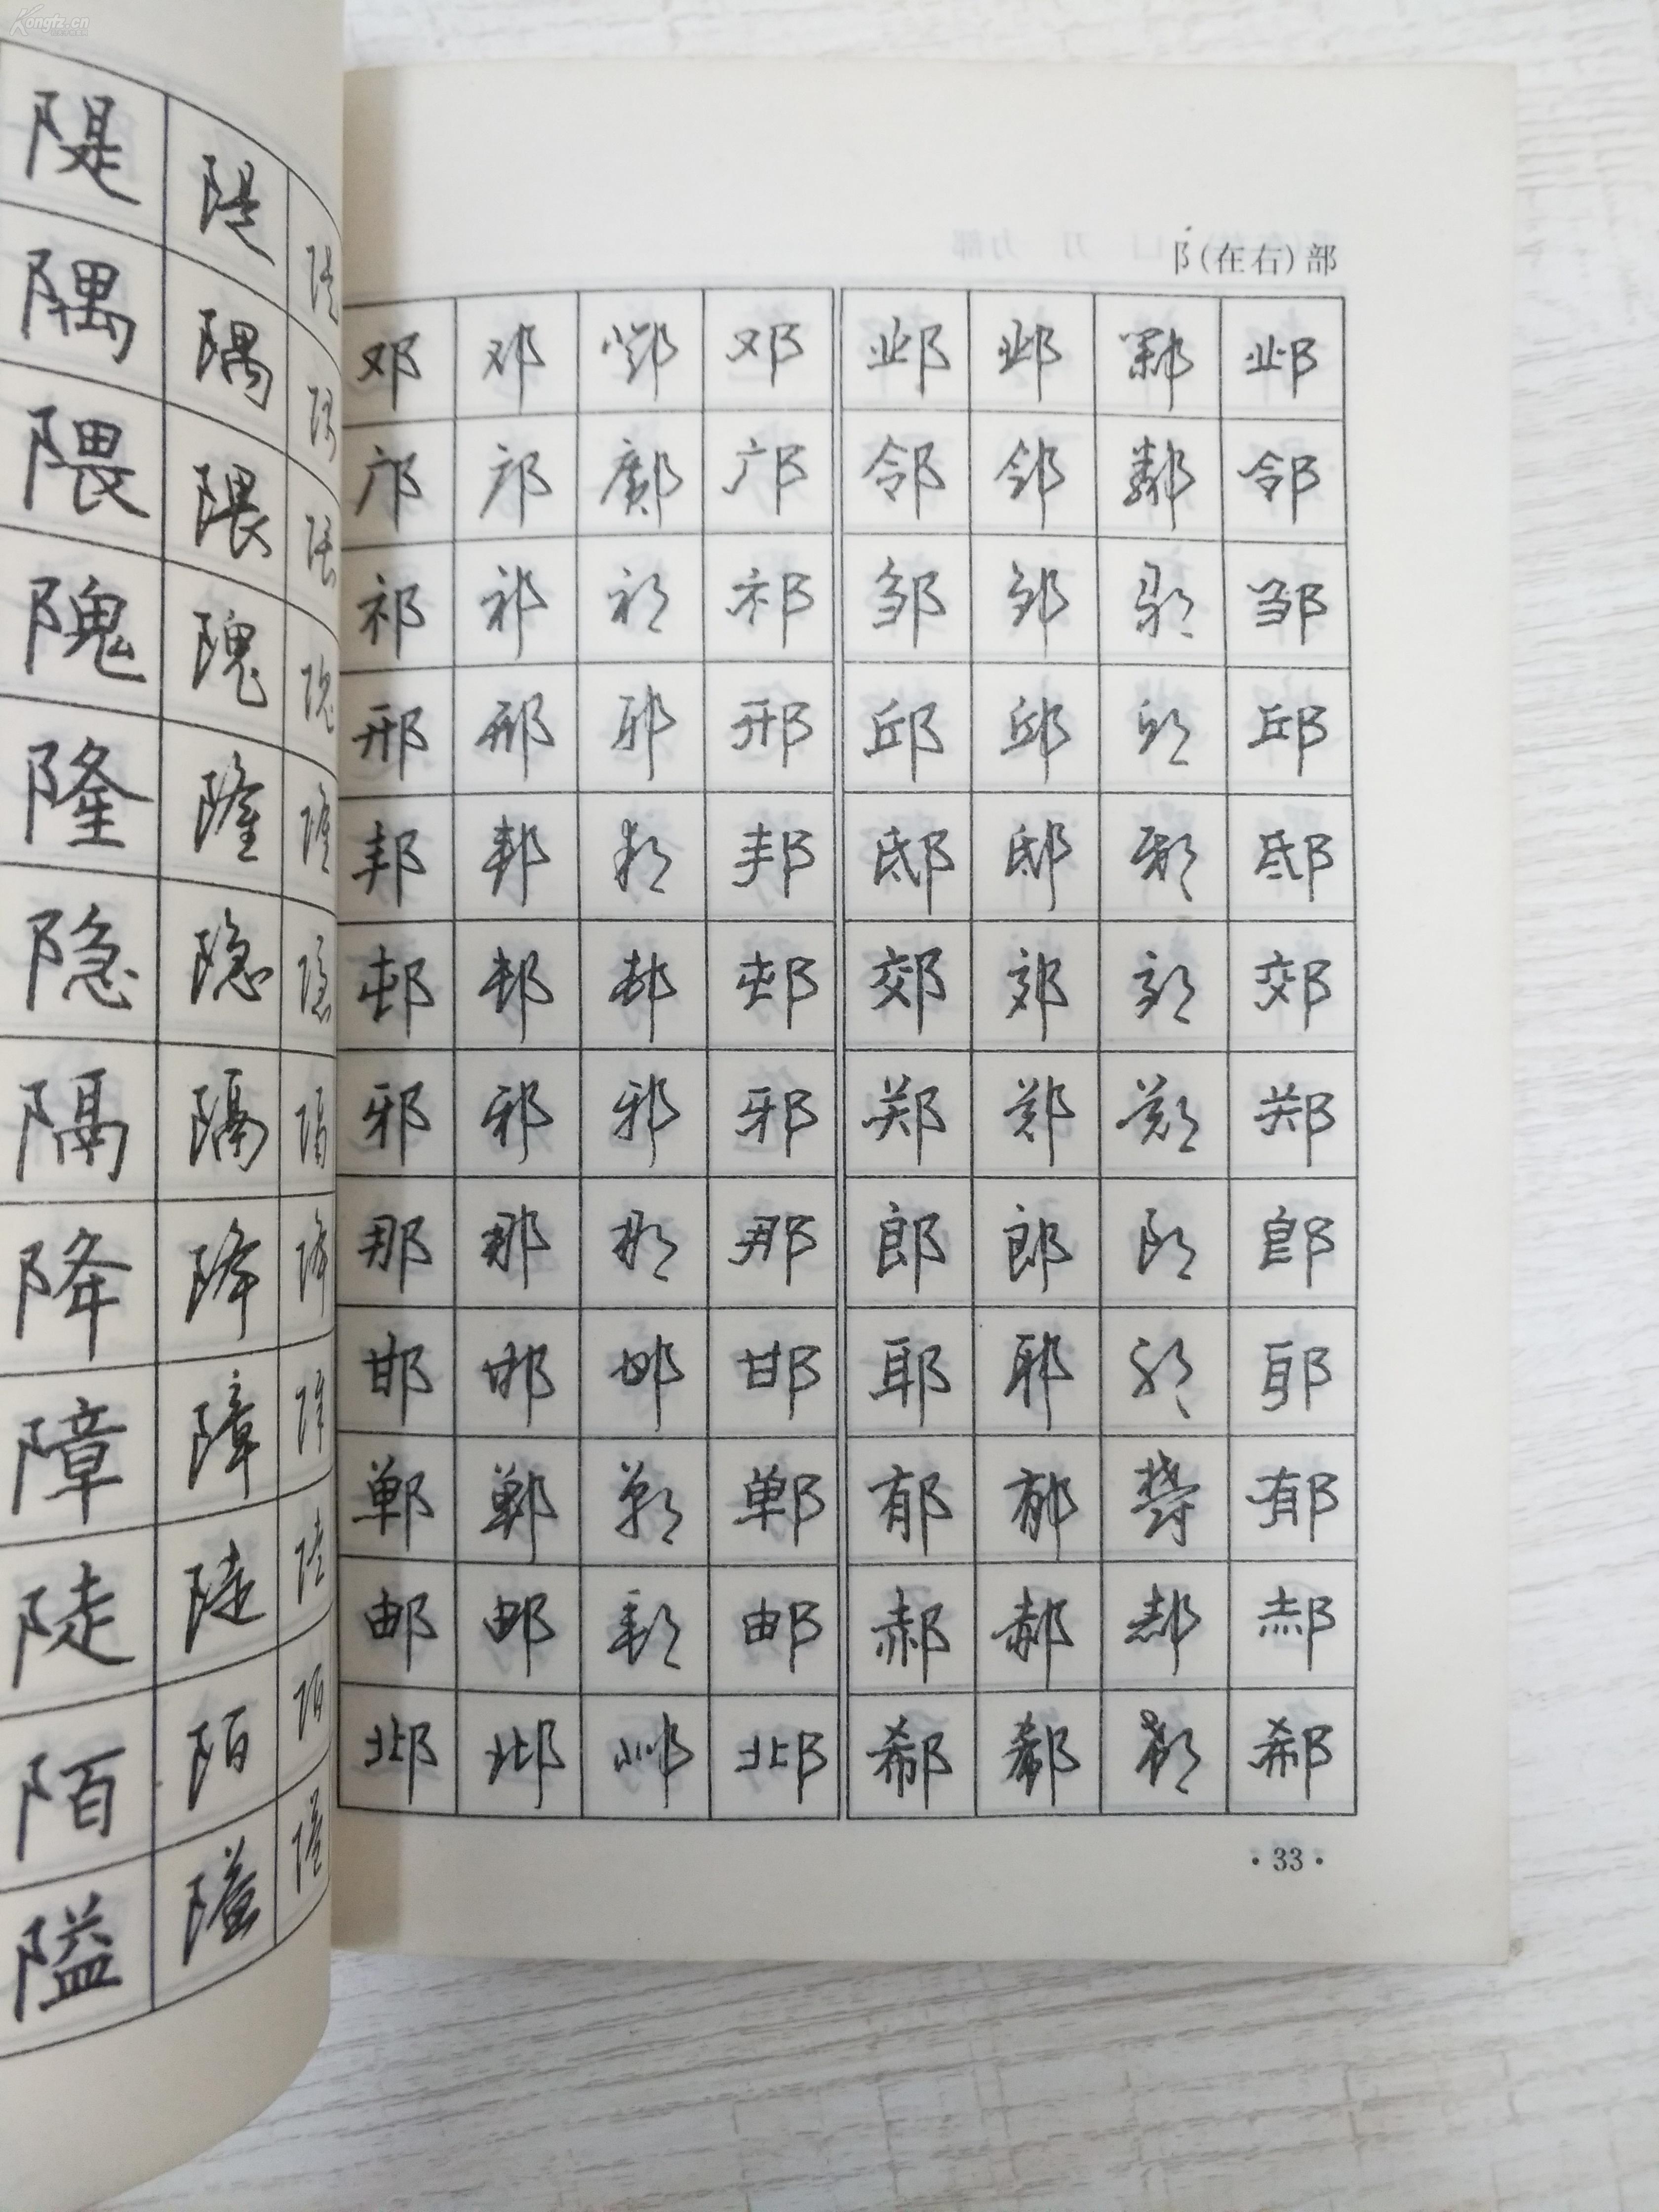 Kongfz.cn
隄 隄 隄
隅 隅 隅
隈 隈 隈
隗 隗 隗
隆 隆 隆
隐 隐 隐
隔 隔 隔
降 降 降
障 障 障
陡 陡 陡
陌 陌 陌
隘 隘 隘
阝(在右)部
邓 邓 鄧 邓 邺 邺 鄴 邺
邝 邝 鄺 邝 邻 邻 鄰 邻
祁 祁 祁 祁 邹 邹 鄒 邹
邢 邢 邢 邢 邱 邱 邱 邱
邦 邦 邦 邦 邸 邸 邸 邸
邨 邨 邨 邨 郊 郊 郊 郊
邪 邪 邪 邪 郑 郑 鄭 郑
那 那 那 那 郎 郎 郎 郎
邯 邯 邯 邯 耶 耶 耶 耶
郸 郸 鄲 郸 郁 郁 郁
邮 邮 郵 邮 郝 郝 郝 郝
邶 邶 邶 邶 郗 郗 郗 郗
·33·